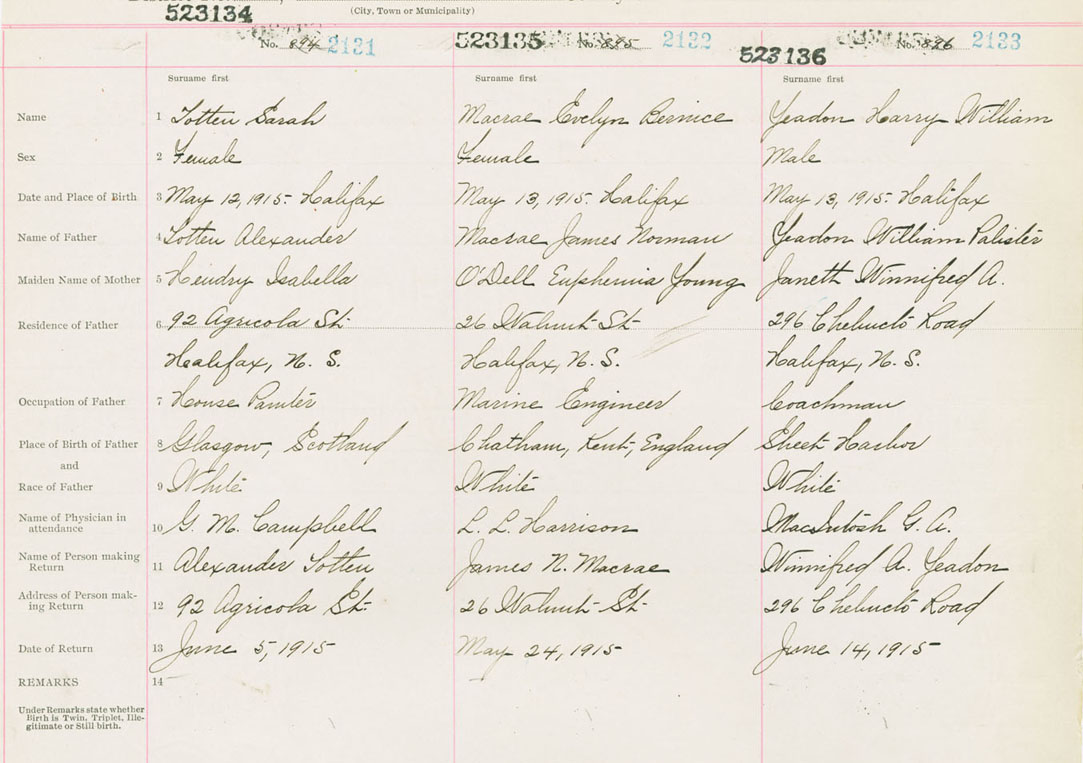 (City, Town or Municipality)
523134 No. 894 2131 523135 No. 895 2132 523136 No. 896 2133
Surname first Surname first Surname first
Name 1 Totten Sarah Macrae Evelyn Bernice Yeadon Harry William
Sex 2 Female Female Male
Date and Place of Birth 3 May 12, 1915- Halifax May 13, 1915- Halifax May 13, 1915- Halifax
Name of Father 4 Totten Alexander Macrae James Norman Yeadon William Palister
Maiden Name of Mother 5 Hendry Isabella O'Dell Euphemia Young Janett Winnifred A.
Residence of Father 6 92 Agricola St. 26 Walnut St. 296 Chebucto Road
Halifax, N. S. Halifax, N. S. Halifax, N. S.
Occupation of Father 7 House Painter Marine Engineer Coachman
Place of Birth of Father 8 Glasgow, Scotland Chatham, Kent, England Sheet Harbor
and
Race of Father 9 White White White
Name of Physician in
attendance 10 G. M. Campbell L. L. Harrison MacIntosh G. A.
Name of Person making
Return 11 Alexander Totten James N. Macrae Winnifred A. Yeadon
Address of Person mak-
ing Return 12 92 Agricola St. 26 Walnut St. 296 Chebucto Road
Date of Return 13 June 5, 1915 May 24, 1915 June 14, 1915
REMARKS 14
Under Remarks state whether
Birth is Twin, Triplet, Ille-
gitimate or Still birth.